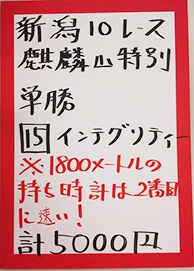 新潟10レース
麒麟山特別
単勝
15 インテグリティー
※1800メートルの
持ち時計は2番目
に速い!
計5000円